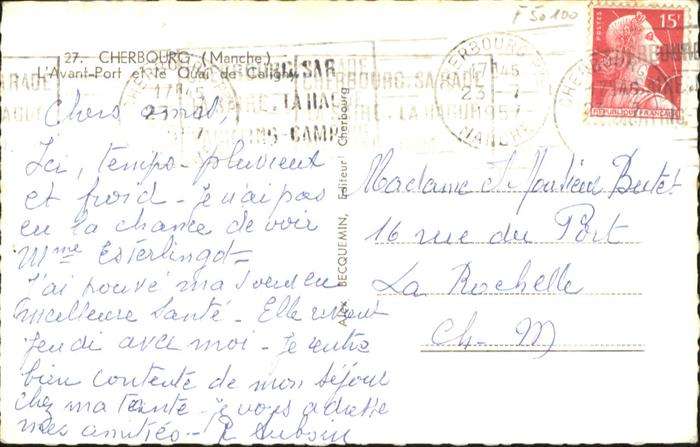 F 50100
27. CHERBOURG (Manche)
L'Avant-Port et le Quai de Coligny
POSTES
15F
RÉPUBLIQUE FRANÇAISE
CHERBOURG
17H45
23-7
1957
MANCHE
CHERBOURG. SA RADE
YACHTING-CAMPING
Chers amis,
Ici, temps pluvieux
et froid - je n'ai pas
eu la chance de voir
Mme Esterlingot -
J'ai trouvé ma soeur en
meilleure santé - Elle revient
jeudi avec moi - Je rentre
bien contente de mon séjour
chez ma tante - je vous adresse
mes amitiés -
Alex BECQUEMIN, Editeur Cherbourg
Madame et Monsieur
16 rue du Port
La Rochelle
Ch. M